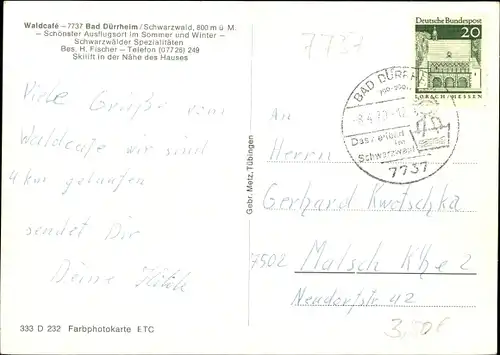 Waldcafé – 7737 Bad Dürrheim/Schwarzwald, 800 m ü. M.
– Schönster Ausflugsort im Sommer und Winter –
Schwarzwälder Spezialitäten
Bes. H. Fischer – Telefon (07726) 249
Skilift in der Nähe des Hauses
7737
Deutsche Bundespost
20
LORSCH/HESSEN
BAD DÜRRHEIM
700-800
-8.4.70-12
Das
im
Schwarzwald
7737
Viele Grüße vom
Waldcafe wir sind
4 km gelaufen
sendet Dir
Deine
Gebr. Metz, Tübingen
An
Herrn
Gerhard Kwotschka
7502 Malsch Khe 2
Neudorfstr 42
333 D 232 Farbphotokarte ETC